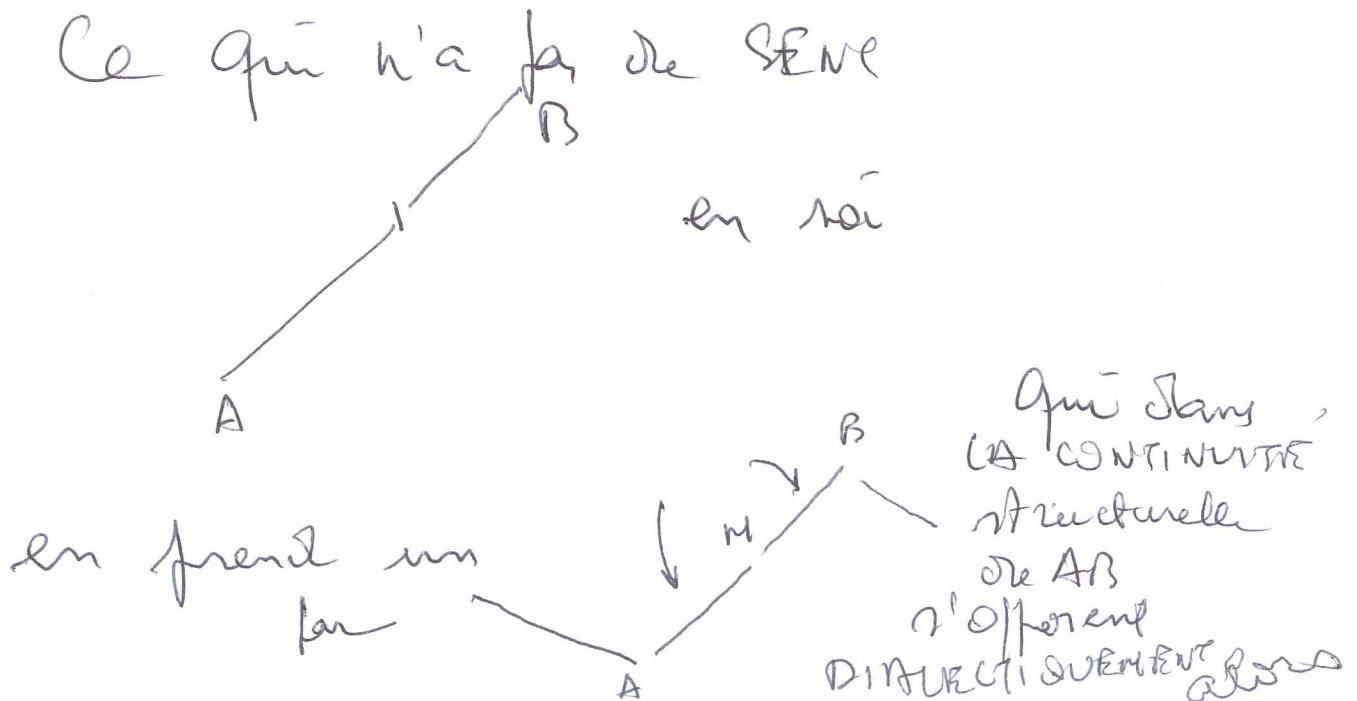 Ce qui n'a pas de SENS
B
en soi
A
B
M
en prend un
par
A
Qui dans
LA CONTINUITÉ
structurelle
de AB
s'opposent
DIALECTIQUEMENT alors